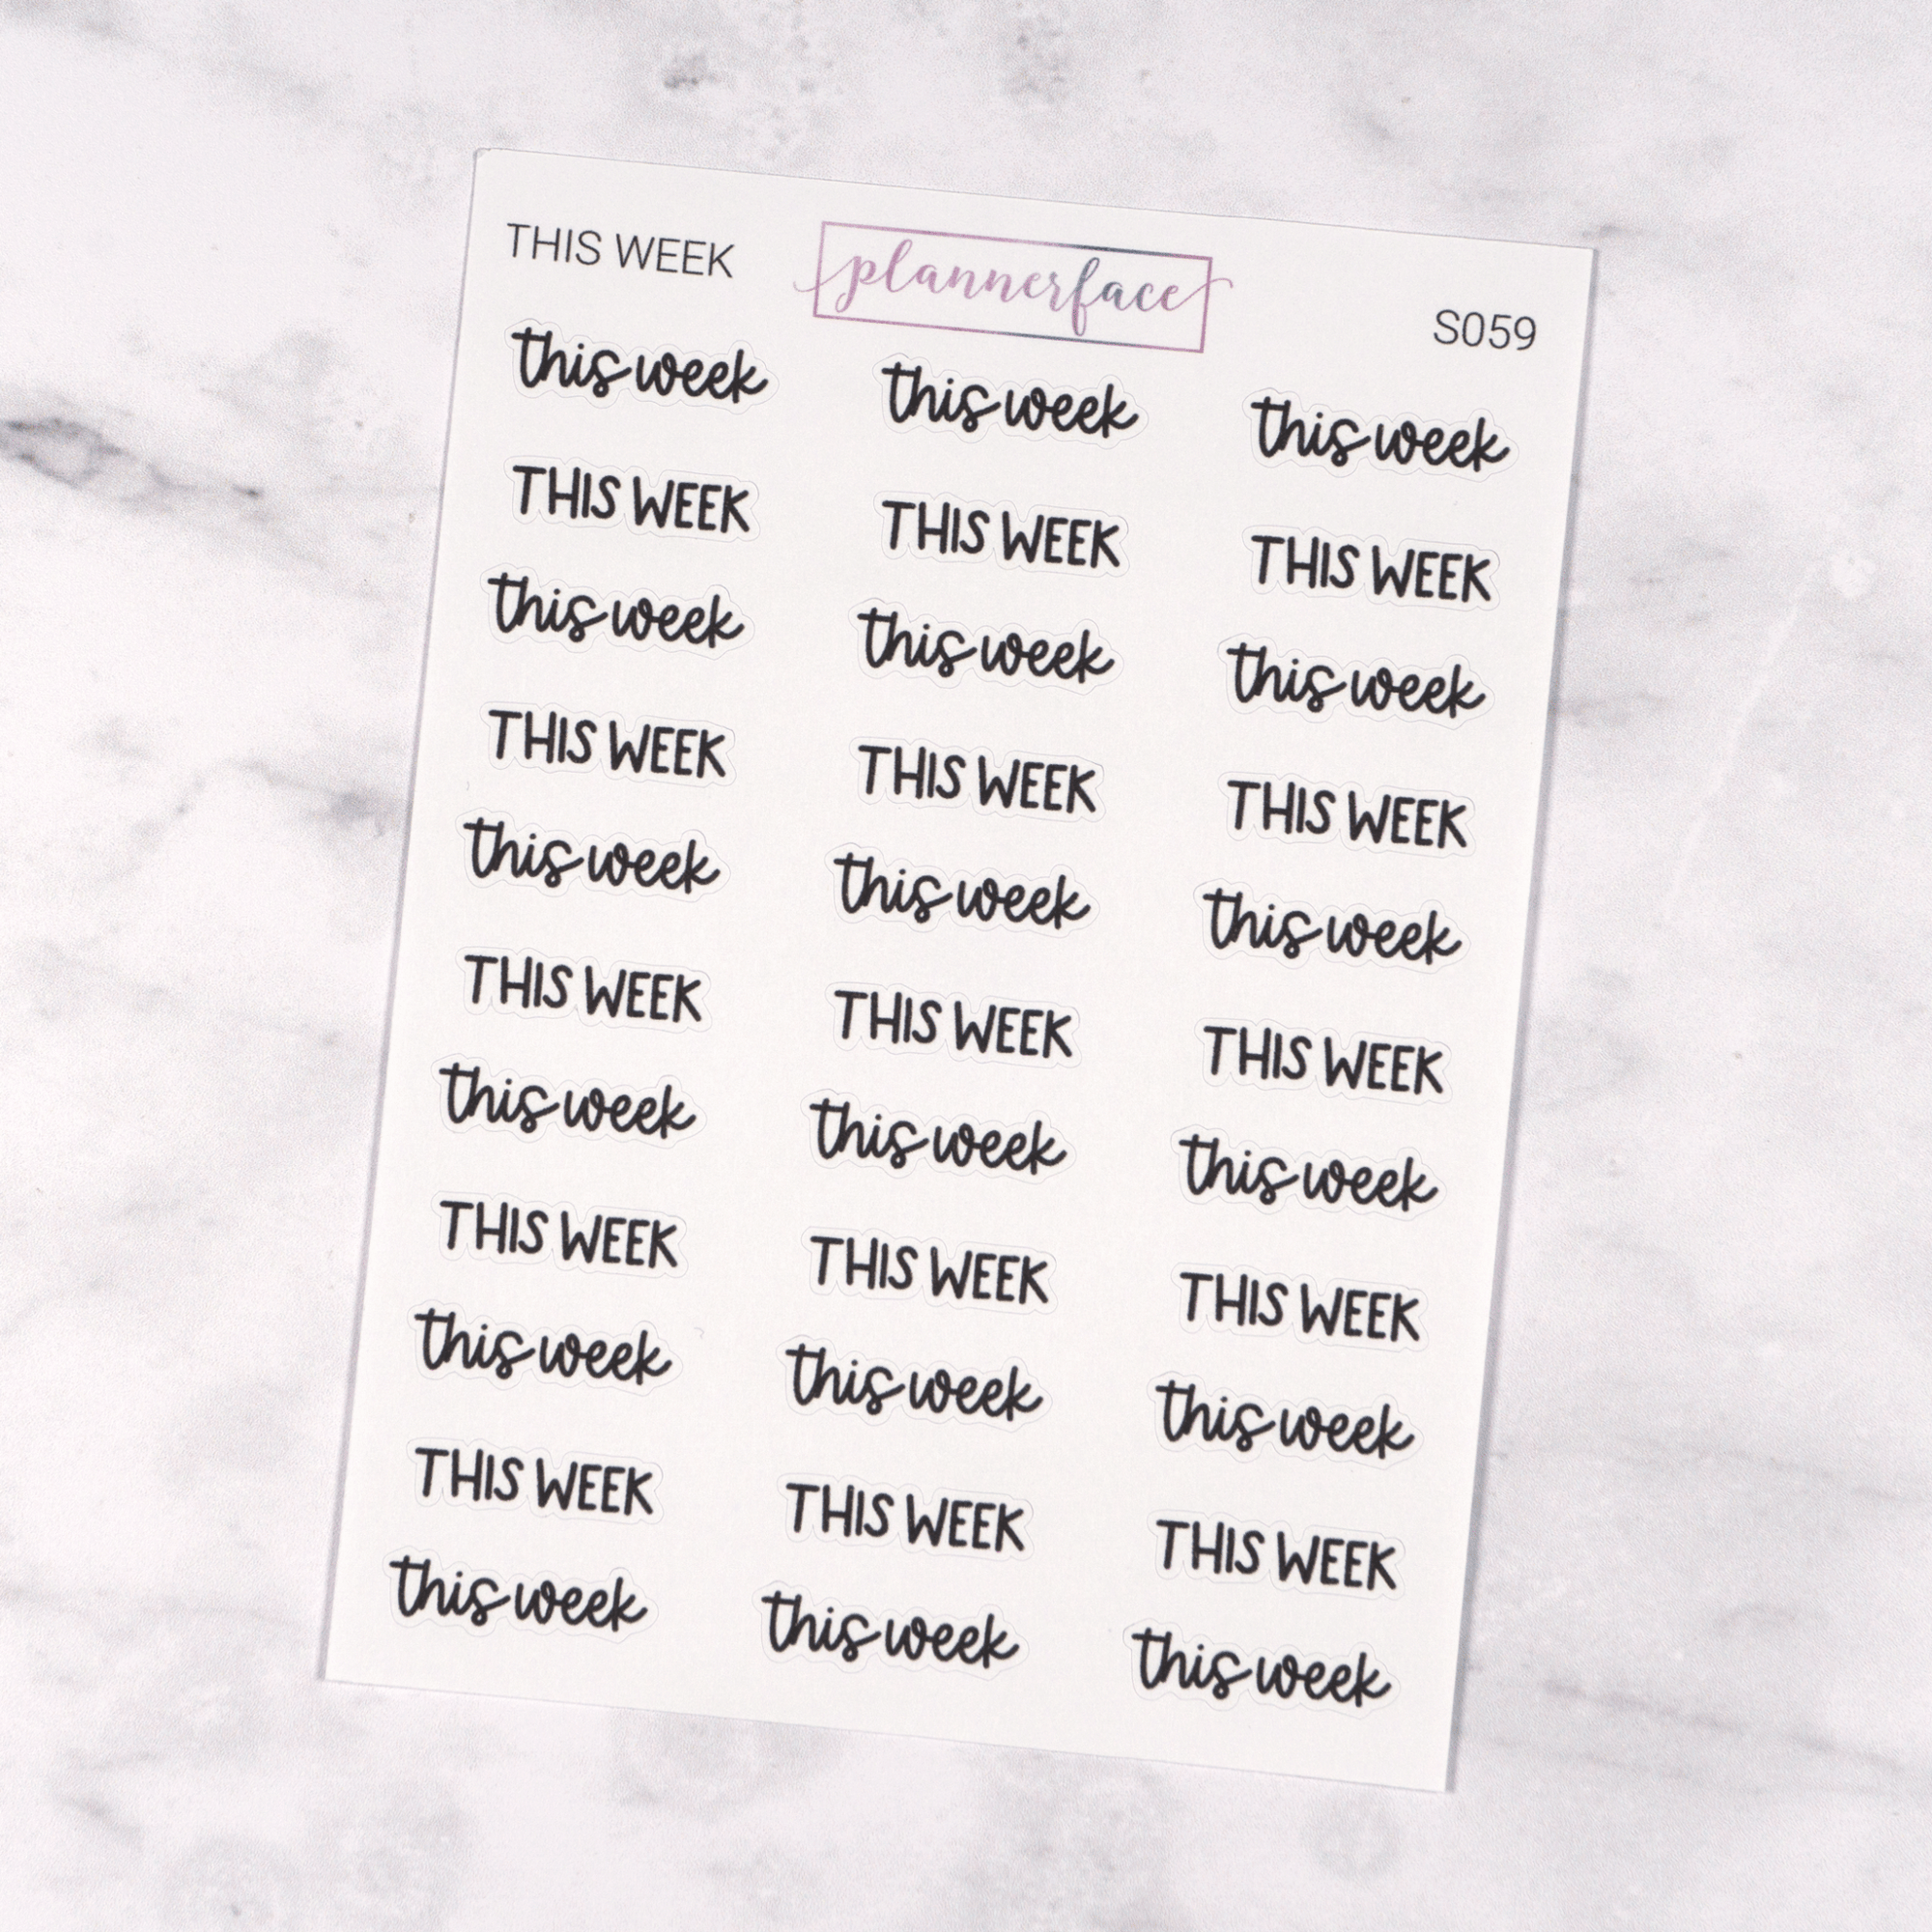 THIS WEEK plannerface S059
this week this week this week
THIS WEEK THIS WEEK THIS WEEK
this week this week this week
THIS WEEK THIS WEEK THIS WEEK
this week this week this week
THIS WEEK THIS WEEK THIS WEEK
this week this week this week
THIS WEEK THIS WEEK THIS WEEK
this week this week this week
THIS WEEK THIS WEEK THIS WEEK
this week this week this week